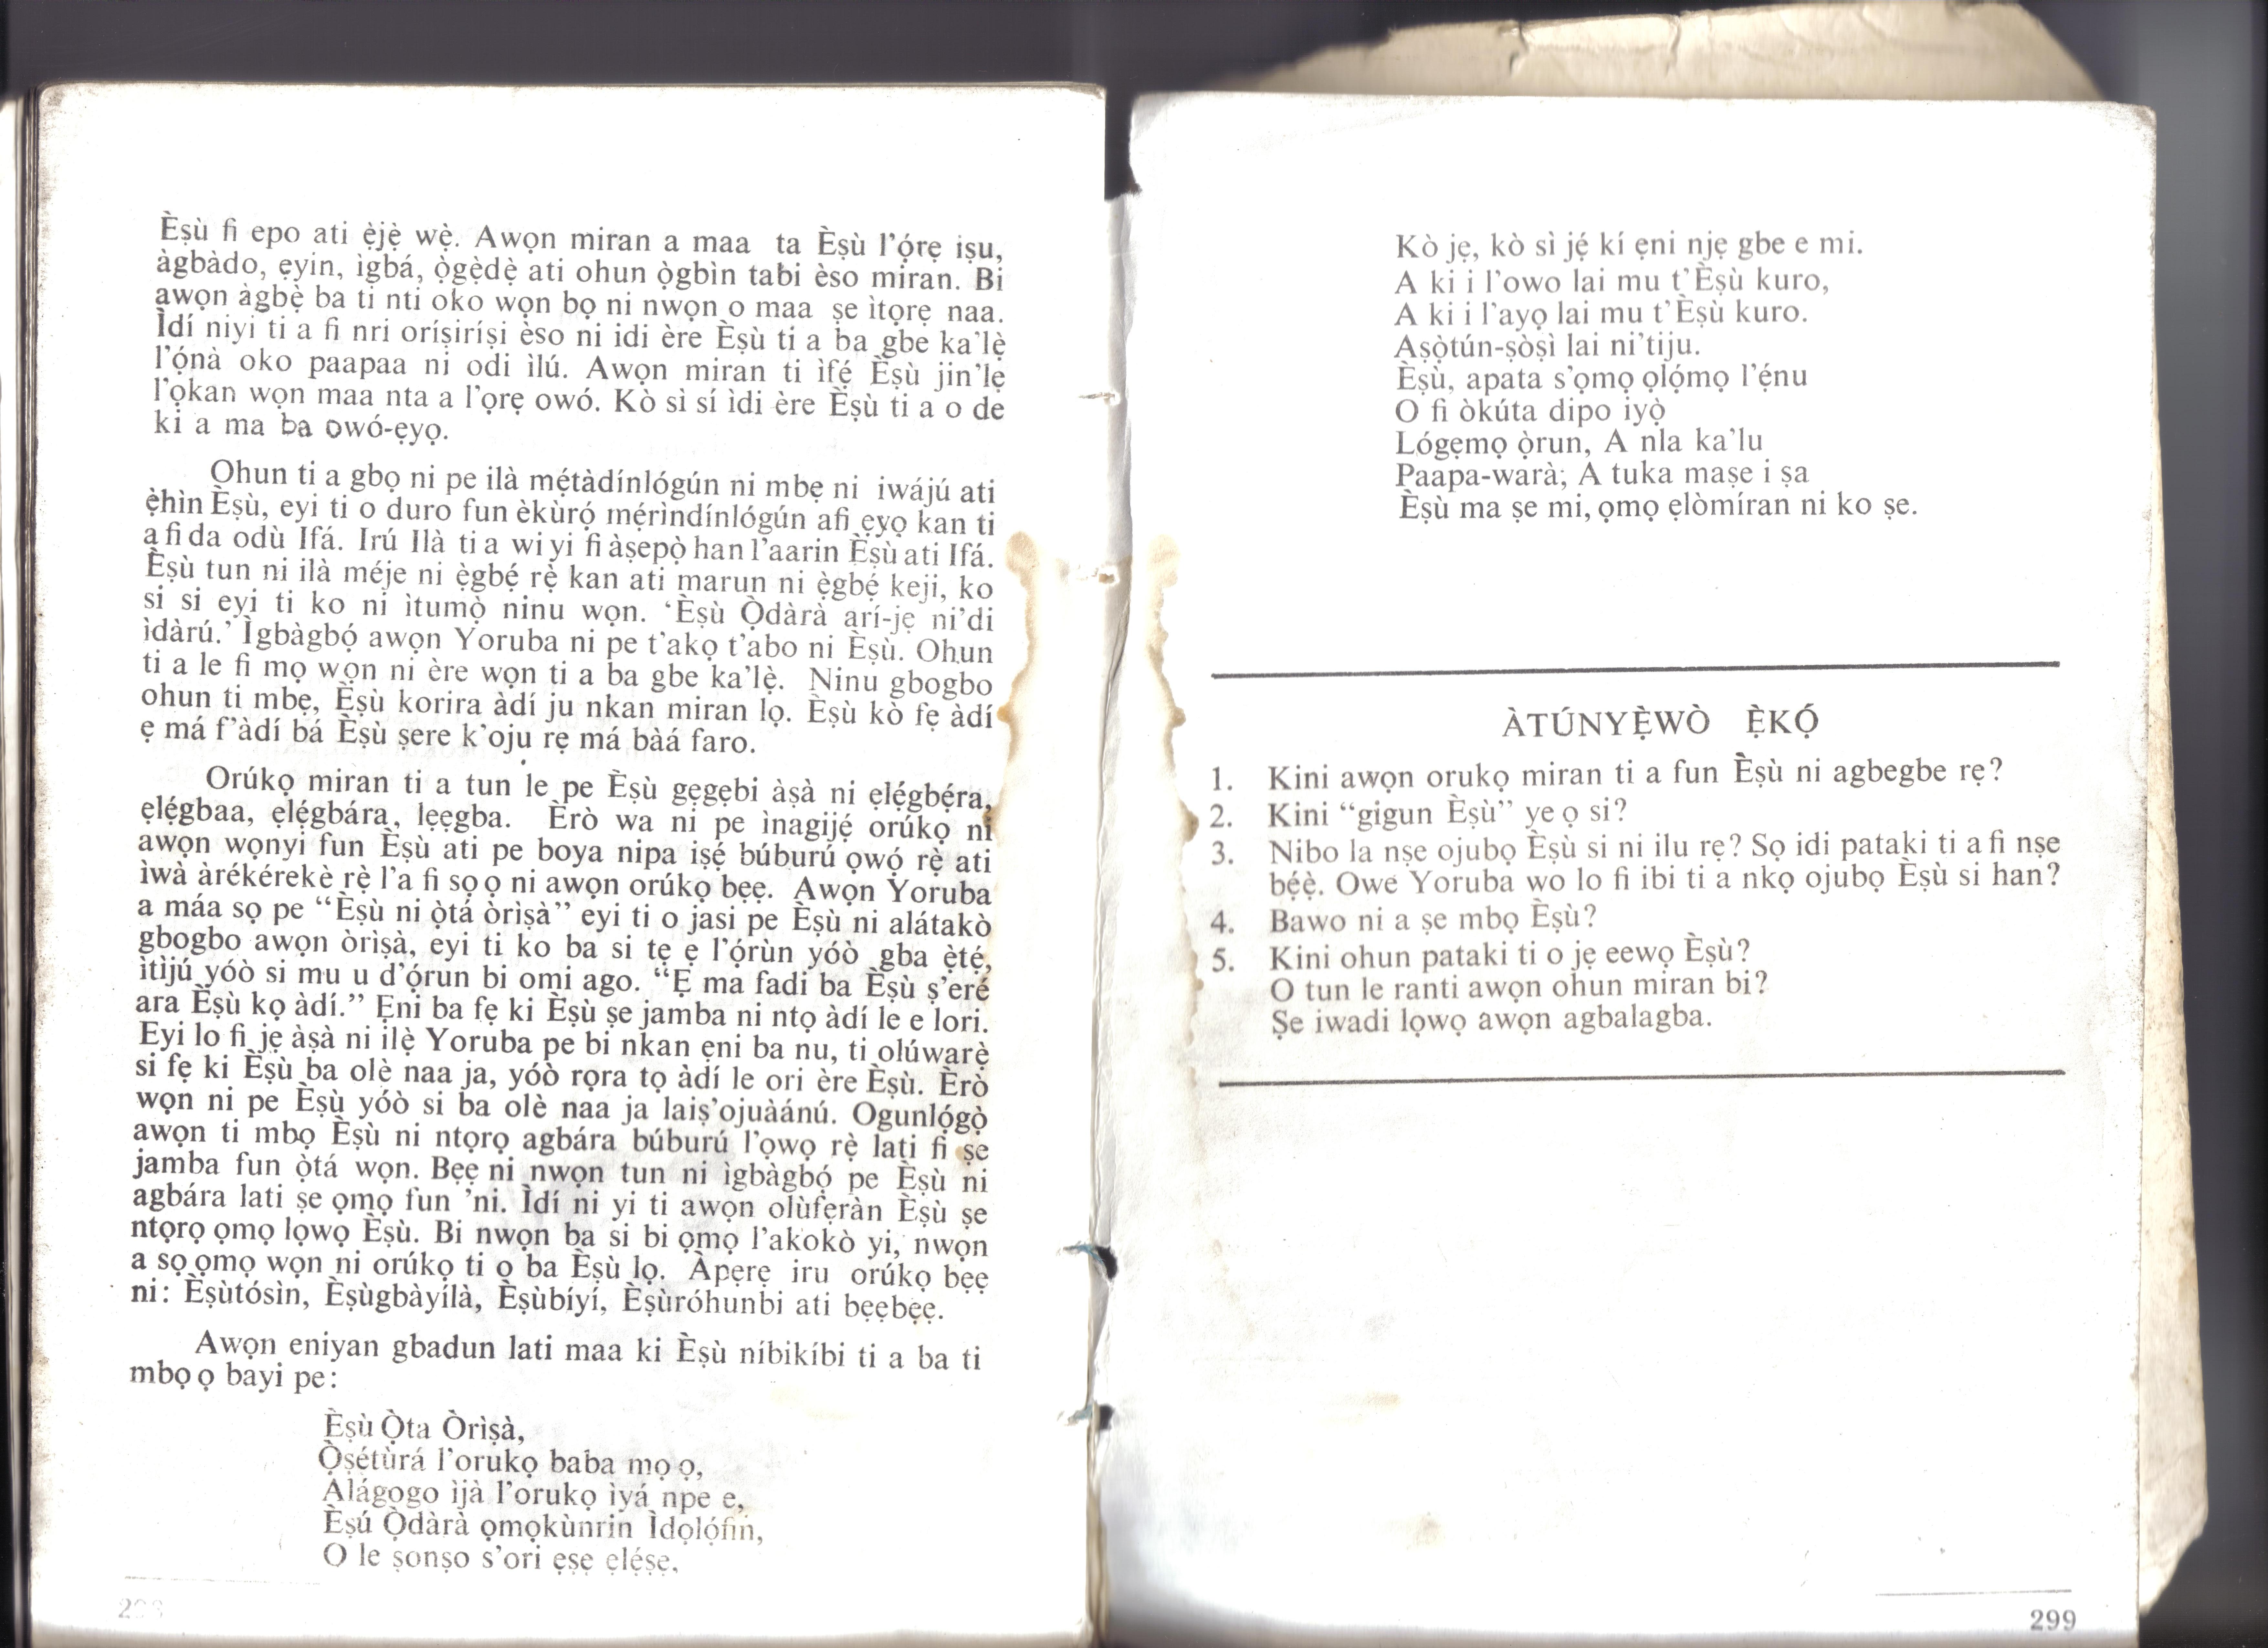 Èṣù fi epo ati ẹ̀jẹ̀ wẹ̀. Awọn miran a maa ta Èṣù l'ọ́rẹ iṣu,
àgbàdo, ẹyin, ìgbá, ọ̀gẹ̀dẹ̀ ati ohun ọ̀gbìn tabi èso miran. Bi
awọn àgbẹ̀ ba ti nti oko wọn bọ ni nwọn o maa ṣe ìtọrẹ naa.
Ìdí niyi ti a fi nri oríṣiríṣi èso ni idi ère Èṣù ti a ba gbe ka'lẹ̀
l'ọ́nà oko paapaa ni odi ìlú. Awọn miran ti ìfẹ́ Èṣù jin'lẹ
l'ọkan wọn maa nta a l'ọrẹ owó. Kò sì sí ìdi ère Èṣù ti a o de
ki a ma ba owó-ẹyọ.
Ohun ti a gbọ ni pe ilà mẹ́tàdínlógún ni mbẹ ni iwájú ati
ẹ̀hìn Èṣù, eyi ti o duro fun èkùrọ́ mẹ́rìndínlógún afi ẹyọ kan ti
a fi da odù Ifá. Irú Ilà ti a wi yi fi àṣepọ̀ han l'aarin Èṣù ati Ifá.
Èṣù tun ni ilà méje ni ẹ̀gbẹ́ rẹ̀ kan ati marun ni ẹ̀gbẹ́ keji, ko
si si eyi ti ko ni ìtumọ̀ ninu wọn. ‘Èṣù Ọ̀dàrà arí-jẹ ni'di
ìdàrú.’ Ìgbàgbọ́ awọn Yoruba ni pe t'akọ t'abo ni Èṣù. Ohun
ti a le fi mọ wọn ni ère wọn ti a ba gbe ka'lẹ̀. Ninu gbogbo
ohun ti mbẹ, Èṣù korira àdí ju nkan miran lọ. Èṣù kò fẹ àdí
ẹ má f'àdí bá Èṣù ṣere k'oju rẹ má bàá faro.
Orúkọ miran ti a tun le pe Èṣù gẹgẹbi àṣà ni ẹlẹ́gbẹ́ra,
ẹlẹ́gbaa, ẹlẹ́gbára, lẹẹgba. Èrò wa ni pe ìnagijẹ́ orúkọ ni
awọn wọnyi fun Èṣù ati pe boya nipa iṣẹ́ búburú ọwọ́ rẹ̀ ati
ìwà àrékérekè rẹ̀ l'a fi sọ ọ ni awọn orúkọ bẹẹ. Awọn Yoruba
a máa sọ pe “Èṣù ni ọ̀tá òrìṣà” eyi ti o jasi pe Èṣù ni alátakò
gbogbo awọn òrìṣà, eyi ti ko ba si tẹ ẹ l'ọ́rùn yóò gba ẹ̀tẹ́,
ìtìjú yóò si mu u d'ọ́run bi omi ago. “Ẹ ma fadi ba Èṣù ṣ'eré
ara Èṣù kọ àdí.” Ẹni ba fẹ ki Èṣù ṣe jamba ni ntọ àdí le e lori.
Eyi lo fi jẹ àṣà ni ilẹ̀ Yoruba pe bi nkan ẹni ba nu, ti olúwarẹ̀
si fẹ ki Èṣù ba olè naa ja, yóò rọra tọ àdí le ori ère Èṣù. Èrò
wọn ni pe Èṣù yóò si ba olè naa ja laiṣ'ojuàánú. Ogunlọ́gọ̀
awọn ti mbọ Èṣù ni ntọrọ agbára búburú l'ọwọ rẹ̀ lati fi ṣe
jamba fun ọ̀tá wọn. Bẹẹ ni nwọn tun ni ìgbàgbọ́ pe Èṣù ni
agbára lati ṣe ọmọ fun 'ni. Ìdí ni yi ti awọn olùfẹràn Èṣù ṣe
ntọrọ ọmọ lọwọ Èṣù. Bi nwọn ba si bi ọmọ l'akokò yi, nwọn
a sọ ọmọ wọn ni orúkọ ti o ba Èṣù lọ. Àpẹrẹ iru orúkọ bẹẹ
ni: Èṣùtósìn, Èṣùgbàyílà, Èṣùbíyí, Èṣùróhunbi ati bẹẹbẹẹ.
Awọn eniyan gbadun lati maa ki Èṣù níbikíbi ti a ba ti
mbọ ọ bayi pe:
Èṣù Ọ̀ta Òrìṣà,
Ọ̀ṣétùrá l'orúkọ baba mọ ọ,
Àlágogo ìjà l'orukọ ìyá npe e,
Èṣú Ọ̀dàrà ọmọkùnrin Ìdọlọ́fin,
O le ṣonṣo s'ori ẹsẹ ẹlẹ́sẹ.
Kò jẹ, kò sì jẹ́ kí ẹni njẹ gbe e mi.
A ki i l'owo lai mu t'Èṣù kuro,
A ki i l'ayọ lai mu t'Èṣù kuro.
Aṣọ̀tún-ṣòṣì lai ni'tiju.
Èṣù, apata s'ọmọ ọlọ́mọ l'ẹ́nu
O fi òkúta dipo iyọ̀
Lógẹmọ ọ̀run, A nla ka'lu
Paapa-warà; A tuka maṣe i ṣa
Èṣù ma ṣe mi, ọmọ ẹlòmíran ni ko ṣe.
ÀTÚNYẸ̀WÒ Ẹ̀KỌ́
1. Kini awọn orukọ miran ti a fun Èṣù ni agbegbe rẹ?
2. Kini “gigun Èṣù” ye ọ si?
3. Nibo la nṣe ojubọ Èṣù si ni ilu rẹ? Sọ idi pataki ti a fi nṣe
bẹ́ẹ̀. Owe Yoruba wo lo fi ibi ti a nkọ ojubọ Èṣù si han?
4. Bawo ni a ṣe mbọ Èṣù?
5. Kini ohun pataki ti o jẹ eewọ Èṣù?
O tun le ranti awọn ohun miran bi?
Ṣe iwadi lọwọ awọn agbalagba.
299